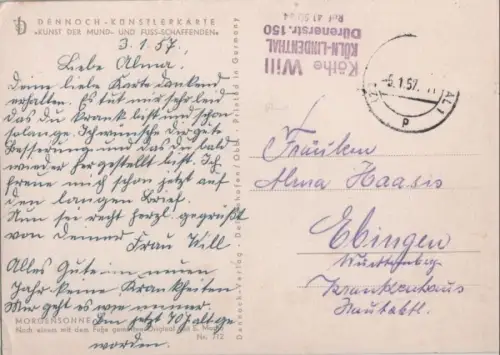 DENNOCH-KÜNSTLERKARTE
«KUNST DER MUND- UND FUSS-SCHAFFENDEN»
3.1.57.
Liebe Alma.
Deine liebe Karte dankend
erhalten. Es tut mir sehr leid
das du krank bist und schon
solange. Ich wünsche dir gute
Besserung und das du bald
wieder hergestellt bist. Ich
freue mich schon jetzt auf
den langen Brief.
Nun sei recht herzl. gegrüßt
von deiner
Frau Will
Alles Gute im neuen
Jahr keine Krankheiten
Mir geht es wie immer.
Bin jetzt 70 J alt ge
worden.
MORGENSONNE
Nach einem mit dem Fuße gemalten Original von E.
Nr. 712
Dennoch-Verlag · Deisenhofen/Obb. · Printed in Germany
Käthe Will
KÖLN-LINDENTHAL
Dürenerstr. 150
Ruf 41 50 94
-5.1.57.
P
Fräulein
Alma Haasis
Ebingen
Württemberg
Krankenhaus
Hautabtl.